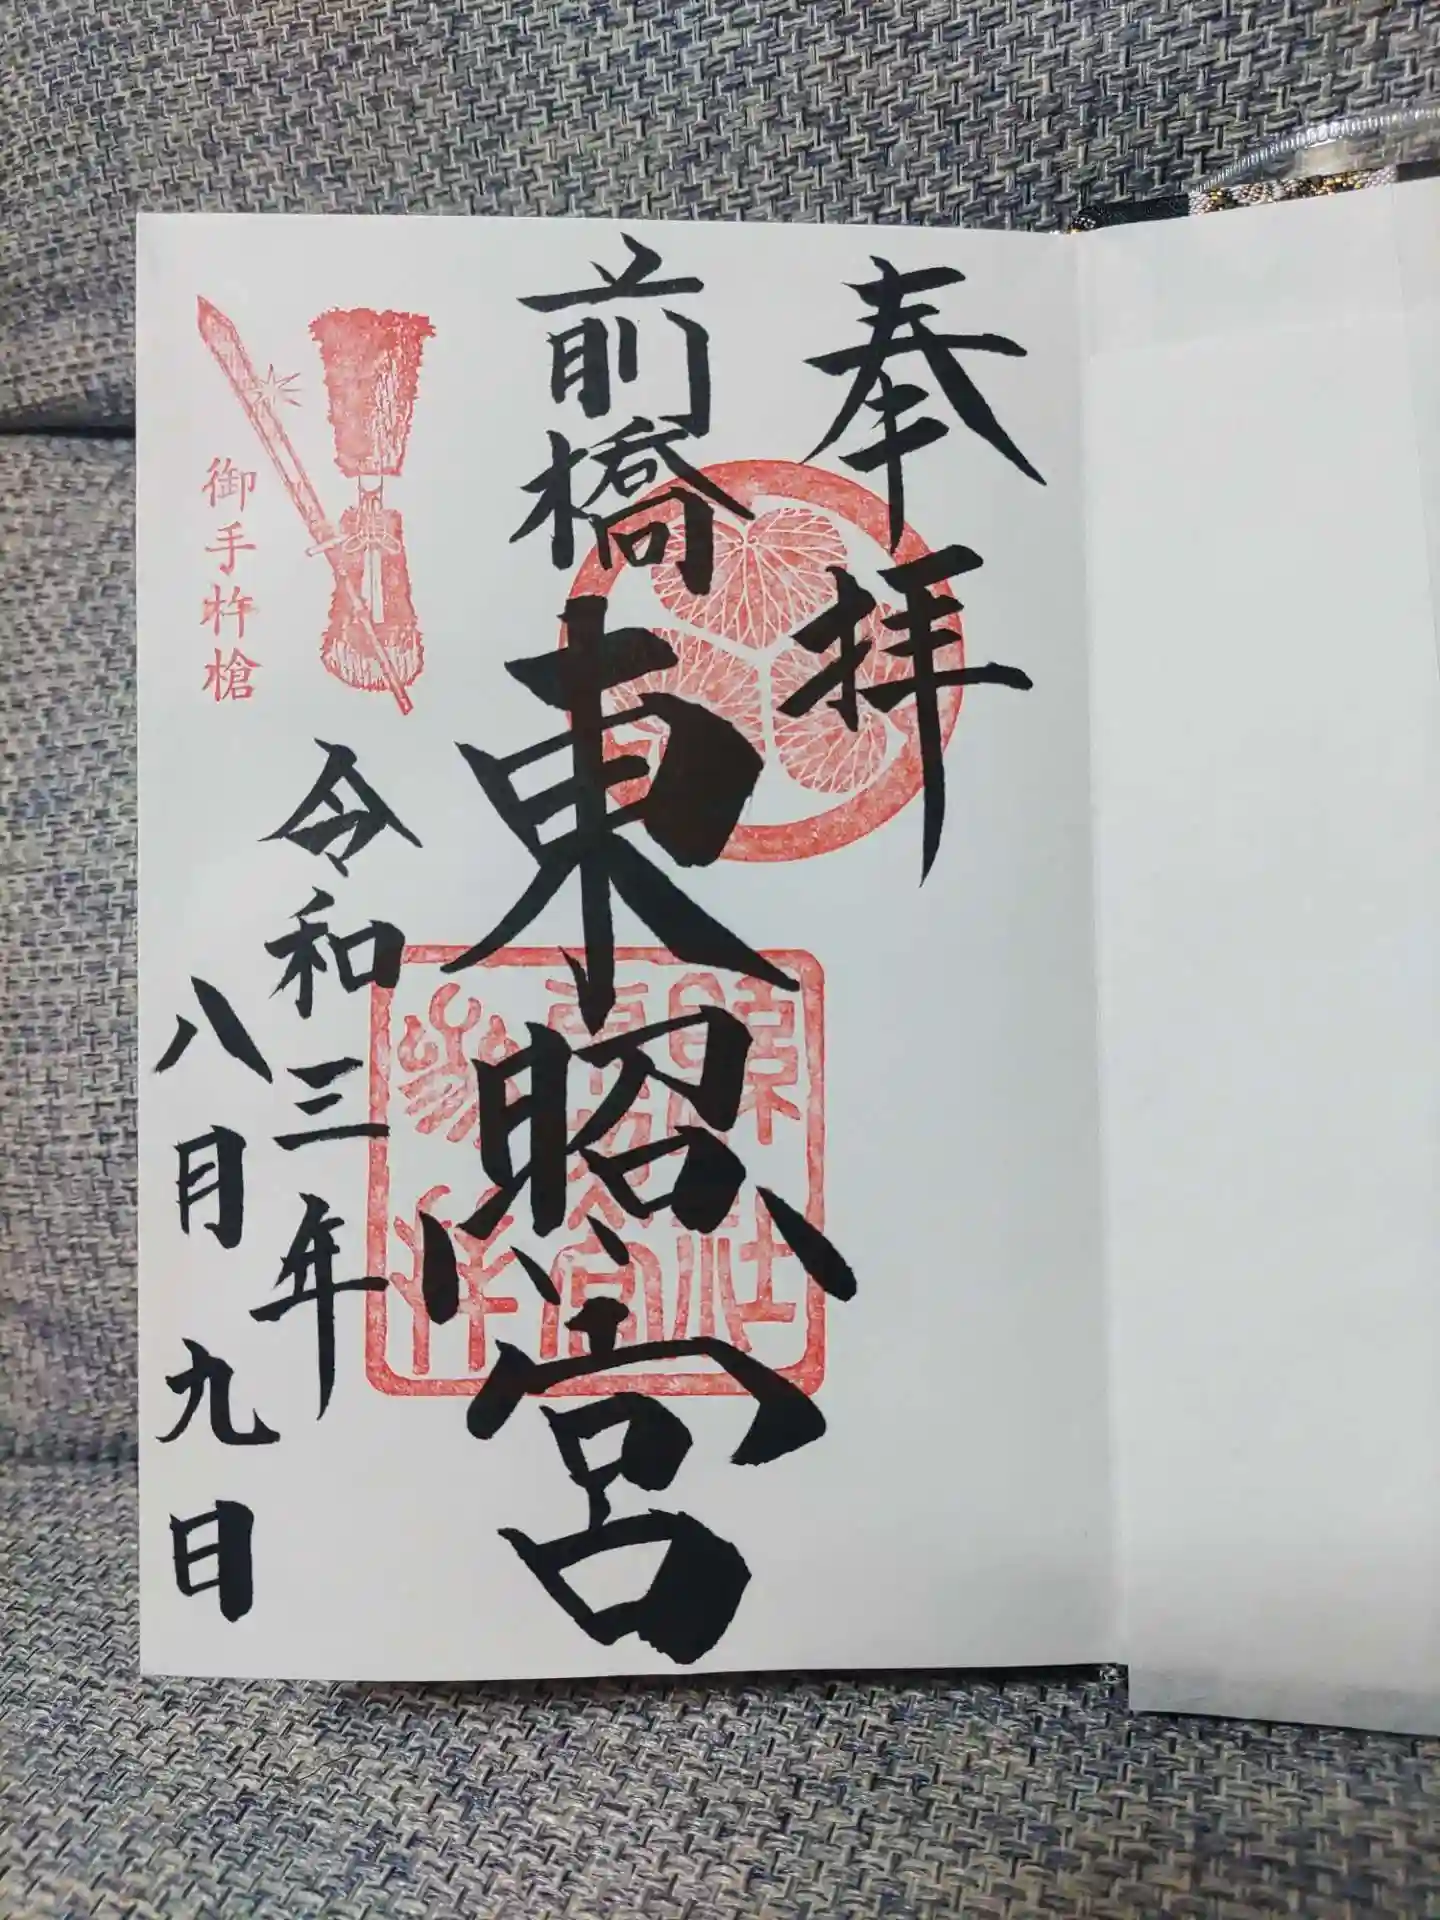 奉拝
前橋東照宮
令和三年
八月九日
御手杵槍